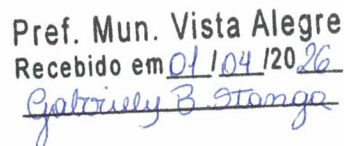 Pref. Mun. Vista Alegre
Recebido em 01/04/2026
Gabriely B Stanga